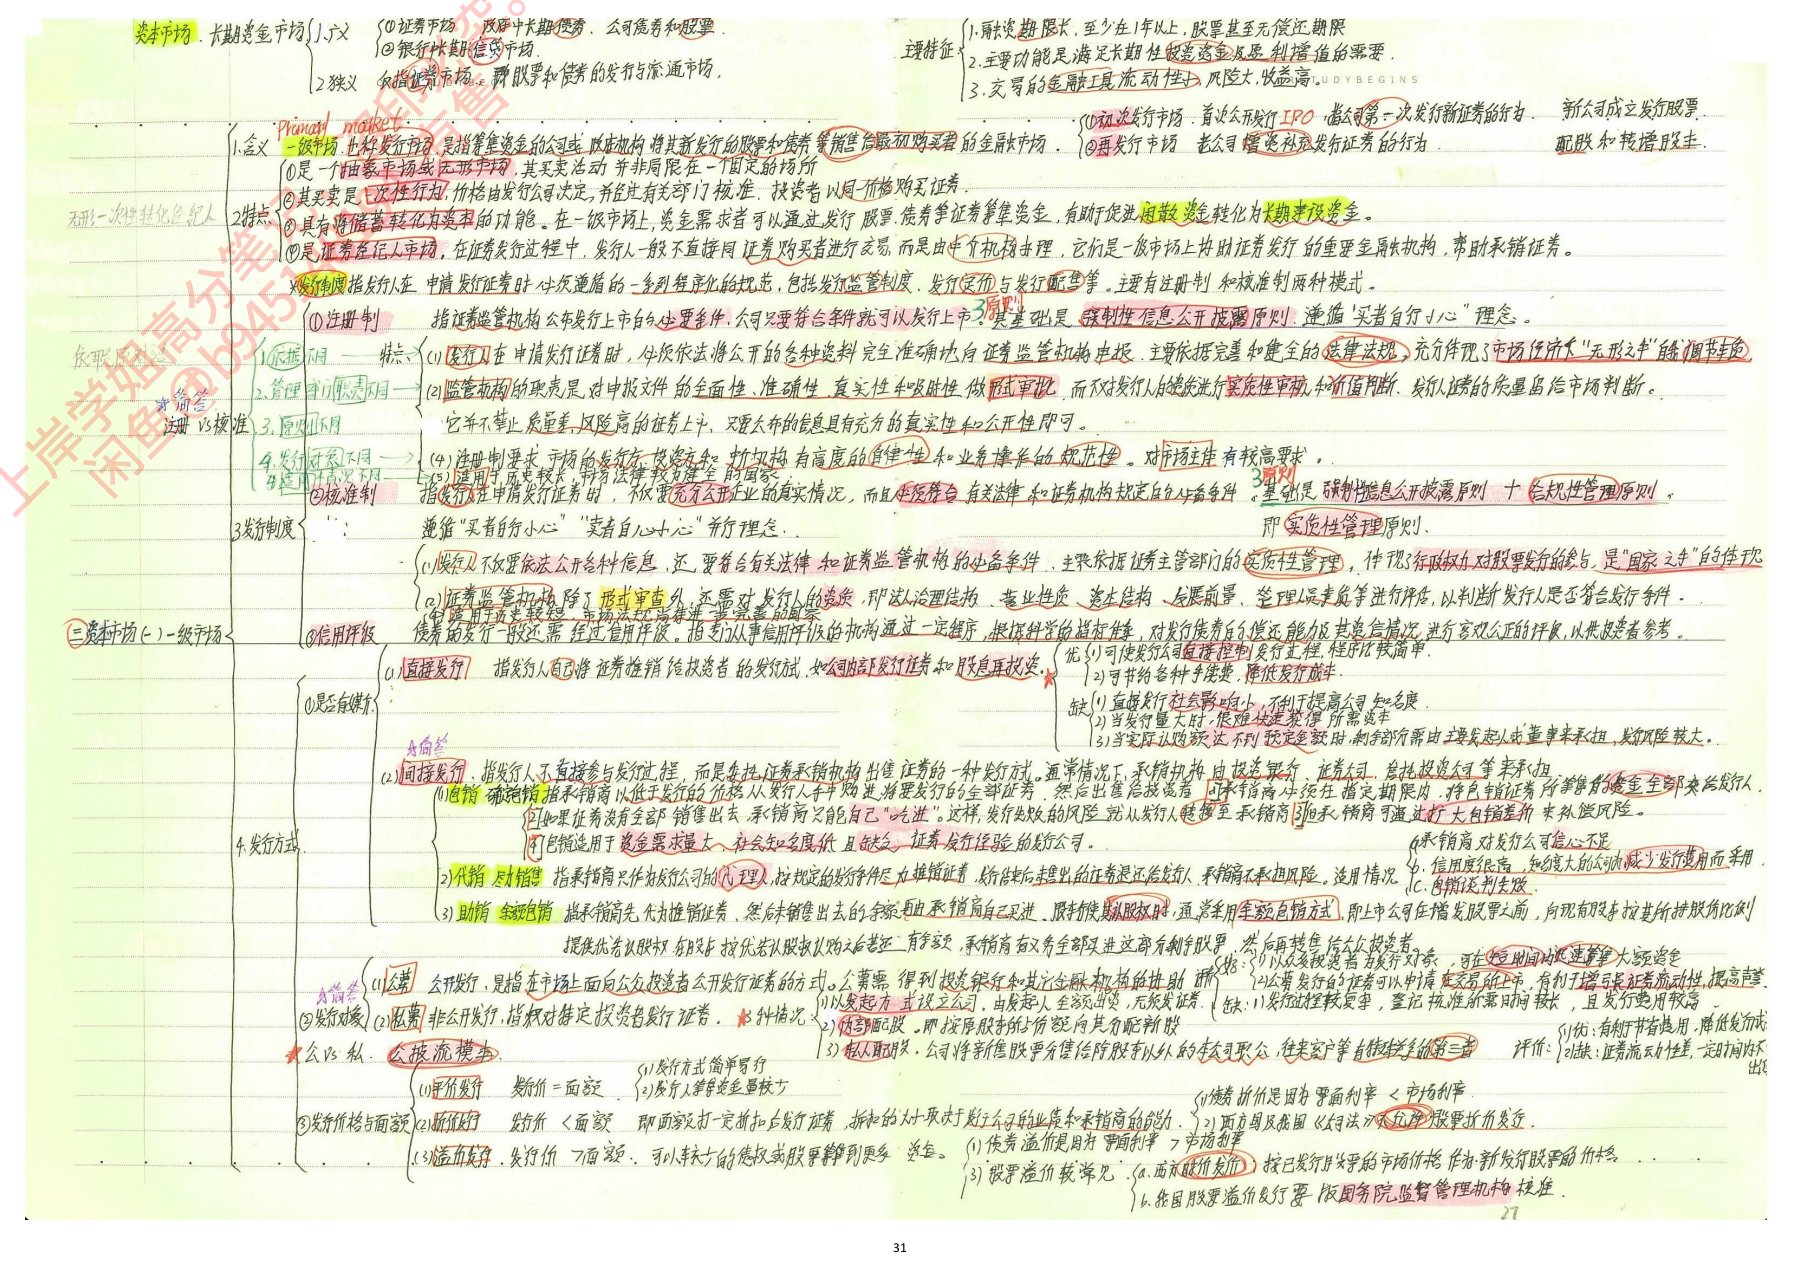 资本市场、长期资金市场
1.广义
①证券市场 政府中长期债券、公司债券和股票
②银行中长期信贷市场.
2.狭义 仅指证券市场、即股票和债券的发行与流通市场.
主要特征
1.融资期限长，至少在1年以上，股票甚至无偿还期限
2.主要功能是满足长期性投资资金及盈利增值的需要.
3.交易的金融工具流动性小，风险大，收益高。
STUDYBEGINS
Primary market
1.含义 一级市场 也称发行市场，是指筹集资金的公司或政府机构将其新发行的股票和债券等销售给最初购买者的金融市场.
①初次发行市场 首次公开发行IPO，指公司第一次发行新证券的行为. 新公司成立发行股票.
②再发行市场 老公司增资补充发行证券的行为 配股和转增股本.
2.特点
①是一个抽象市场或无形市场，其买卖活动并非局限在一个固定的场所
②其买卖是一次性行为，价格由发行公司决定，并经过有关部门核准. 投资者以同一价格购买证券.
③具有将储蓄转化为资本的功能。在一级市场上，资金需求者可以通过发行股票、债券等证券筹集资金，有助于促进闲散资金转化为长期建设资金。
④是证券经纪人市场. 在证券发行过程中，发行人一般不直接同证券购买者进行交易，而是由中介机构办理，它们是一级市场上协助证券发行的重要金融机构，帮助承销证券。
无形一次性转化经纪人
*发行制度指发行人在申请发行证券时必须遵循的一系列程序化的规范，包括发行监管制度、发行定价与发行配售等。主要有注册制和核准制两种模式。
3.发行制度
①注册制 指证券监管机构公布发行上市的必要条件，公司只要符合条件就可以发行上市。其基础是强制性信息公开披露原则. 遵循"买者自行小心"理念。
3原则
特点：(1)发行人在申请发行证券时，必须依法将公开的各种资料完全准确地向证券监管机构申报. 主要依据完善和健全的法律法规，充分体现了市场经济大"无形之手"的自我调节本色
(2)监管机构的职责是对申报文件的全面性、准确性、真实性和及时性做形式审批，而不对发行人的资质进行实质性审核和价值判断. 发行人证券的质量留给市场判断。
它并不禁止质量差、风险高的证券上市、只要公布的信息具有充分的真实性和公开性即可。
(4)注册制要求市场的发行方、投资方和中介机构有高度的自律性和业务操作的规范性。对市场主体有较高要求。
(5)适用于历史较长，市场法律较为健全的国家
*简答
注册VS核准
1.依据不同
2.管理部门职责不同
3.原则不同
4.发行对象不同
5.适用情况不同
②核准制 指发行人在申请发行证券时，不仅要充分公开企业的真实情况，而且必须符合有关法律和证券机构规定的必备条件.
3原则
基础是强制性信息公开披露原则 + 合规性管理原则。
遵循"买者自行小心""卖者自己小心"并行理念. 即实质性管理原则.
(1)发行人不仅要依法公开各种信息，还要符合有关法律和证券监管机构的必备条件. 主要依据证券主管部门的实质性管理，体现了行政权力对股票发行的参与，是"国家之手"的体现
(2)证券监管机构除了形式审查外，还需对发行人的资质，即法人治理结构、营业性质、资本结构、发展前景、管理人员素质等进行评估，以判断发行人是否符合发行条件.
③信用评级 债券的发行一般还需经过信用评级。指专门从事信用评级的机构通过一定程序，根据科学的指标体系，对发行债券的偿还能力及其资信情况进行客观公正的评级，以供投资者参考。
三资本市场(一)一级市场
4.发行方式
①是否有媒介
(1)直接发行 指发行人自己将证券推销给投资者的发行方式. 如公司内部发行证券和股息再投资.
优 1)可使发行公司直接控制发行过程，程序比较简单.
2)可节约各种手续费，降低发行成本.
缺 1)直接发行社会影响小，不利于提高公司知名度
2)当发行量大时，很难快速获得所需资本
3)当实际认购额达不到预定金额时，剩余部分需由主要发起人或董事来承担，发行风险较大。
*简答
(2)间接发行 指发行人不直接参与发行过程，而是委托证券承销机构出售证券的一种发行方式。通常情况下，承销机构由投资银行、证券公司、信托投资公司等来承担
1)包销 确定包销指承销商以低于发行的价格从发行人手中购进将要发行的全部证券. 然后出售给投资者 ①承销商必须在指定期限内，将包销证券所筹集的资金全部交给发行人.
②如果证券没有全部销售出去，承销商只能自己"吃进"。这样，发行失败的风险就从发行人转移至承销商 ③但承销商可通过扩大包销差价来补偿风险。
④包销适用于资金需求量大、社会知名度低且缺乏证券发行经验的发行公司。
2)代销 尽力销售 指承销商只作为发行公司的代理人，按规定的发行条件尽力推销证券，发行结束后未售出的证券退还给发行人，承销商不承担风险。适用情况
a.承销商对发行公司信心不足
b.信用度很高，知名度大的公司为减少发行费用而采用.
c.包销谈判失败.
3)助销 余额包销 指承销商先代为推销证券、然后未销售出去的余额再由承销商自己买进. 股东行使其认股权时，通常采用余额包销方式，即上市公司在增发股票之前，向现有股东按其所持股份比例
提供优先认股权，在股东按优先认股权认购之后若还有余额，承销商有义务全部买进这部分剩余股票，然后再转售给公众投资者.
*简答
②发行对象
(1)公募 公开发行，是指在市场上面向公众投资者公开发行证券的方式。公募需得到投资银行和其它金融机构的协助
优：1)以众多投资者为发行对象，可在短时间内迅速筹集大额资金
2)公募发行的证券可以申请在交易所上市，有利于增强证券流动性，提高声誉
缺：1)发行过程较复杂，登记核准所需时间较长，且发行费用较高.
(2)私募 非公开发行，指针对特定投资者发行证券. *3种情况：
1)以发起方式设立公司，由发起人全额出资，无须发证券.
2)内部配股. 即按原股东所占份额向其分配新股
3)私人配股. 公司将新售股票分售给除股东以外的本公司职工、往来客户等有特殊关系的第三者
评价：1)优：有利于节省费用，降低发行成
2)缺：证券流动性差，一定时间内不
*公VS私. 公披流模率
③发行价格与面额
(1)平价发行 发行价=面额
1)发行方式简单易行
2)发行人筹集资金量较少
(2)折价发行 发行价<面额 即面额打一定折扣后发行证券，折扣的大小取决于发行公司的业绩和承销商的能力.
1)债券折价是因为票面利率<市场利率.
2)西方国及我国《公司法》不允许股票折价发行.
(3)溢价发行. 发行价>面额. 可以车少的债权或股票筹到更多资金。
1)债券溢价是因为票面利率>市场利率
3)股票溢价较常见.
a.西方时价发价：按已发行股票的市场价格作为新发行股票的价格
b.我国股票溢价发行要报国务院监督管理机构核准.
27
上岸学姐高分笔记
31